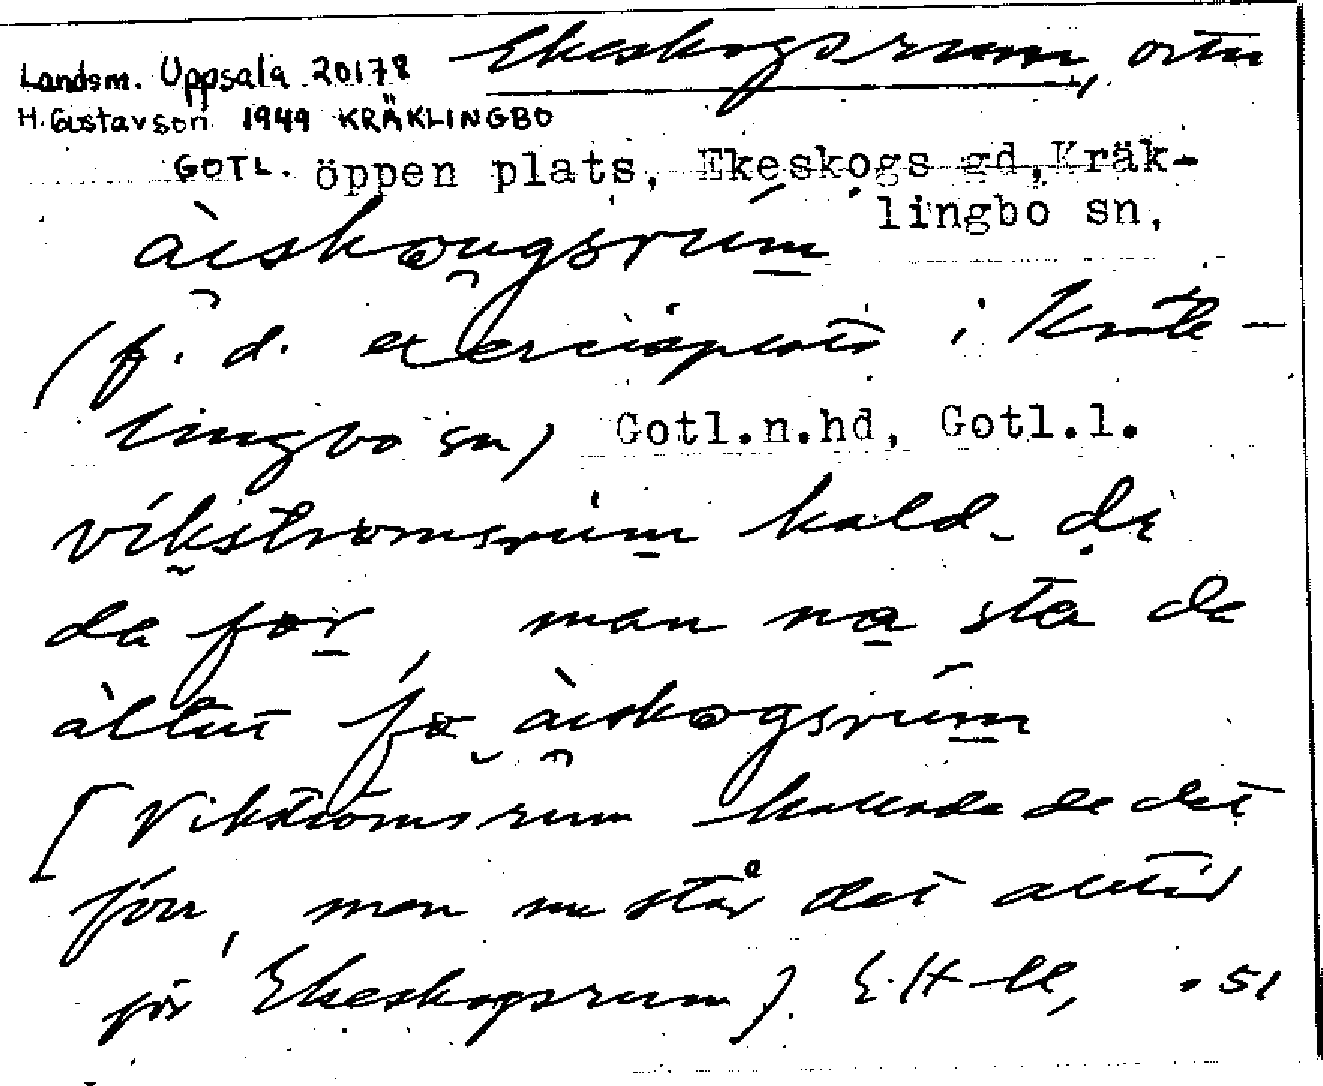 Ekeskogsrum, ortn
Landsm. Uppsala 20178
H. Gustavson 1949 KRÄKLINGBO
GOTL. öppen plats, Ekeskogs gd, Kräk-
lingbo sn,
àiskøugsrúm
(f. d. exercisplats i Kräk-
lingbo sn) Gotl.n.hd, Gotl.l.
vikstrømsrum kald- di
da før, man na sta de
àltut fø àiskogsrúm
[Vikströmsrum kallade de det
förr, men nu står det alltid
för Ekeskogsrum]. E. H-ll, -51